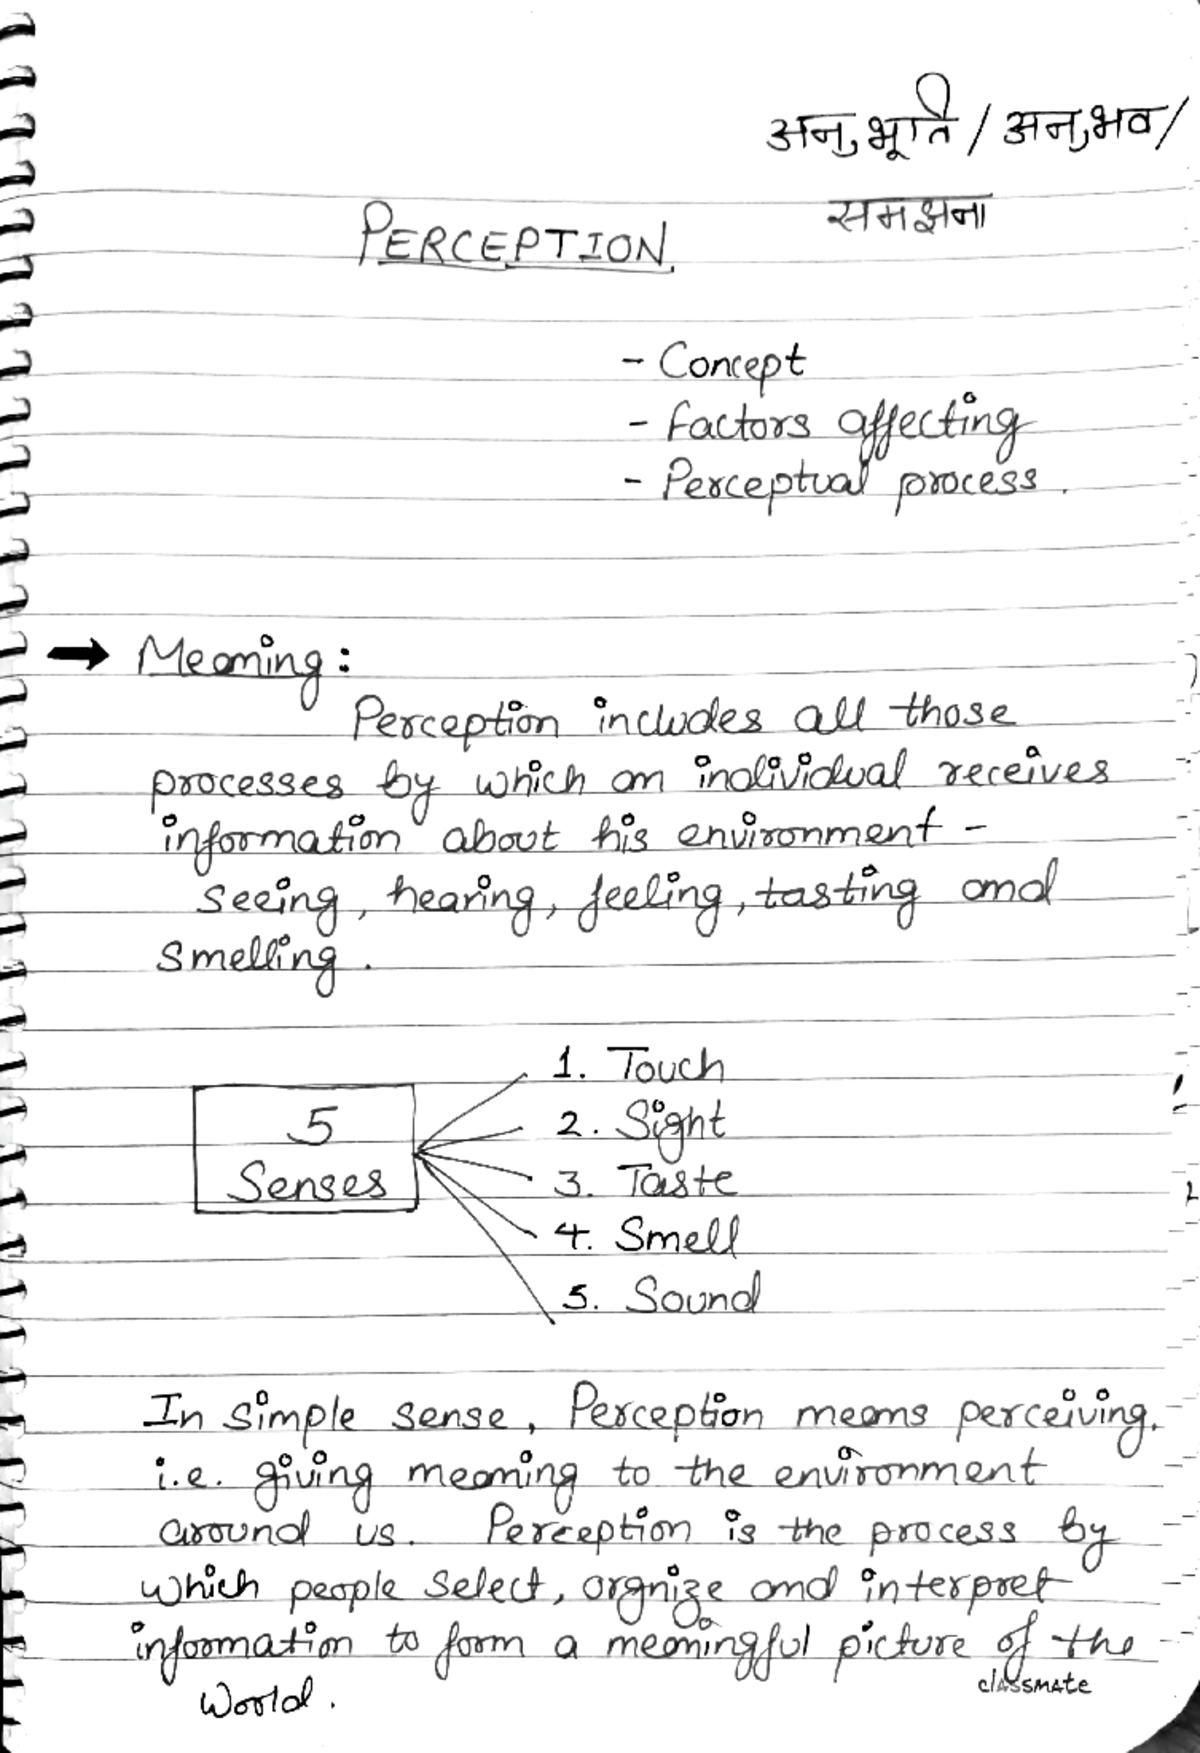 अनुभूति / अनुभव /
समझना
PERCEPTION
- Concept
- Factors affecting
- Perceptual process.
→ Meaning:
Perception includes all those
processes by which an individual receives
information about his environment -
seeing, hearing, feeling, tasting and
smelling.
5
Senses
1. Touch
2. Sight
3. Taste
4. Smell
5. Sound
In simple sense, Perception means perceiving.
i.e. giving meaning to the environment
around us. Perception is the process by
which people select, orgnize and interpret
information to form a meaningful picture of the
World.
classmate